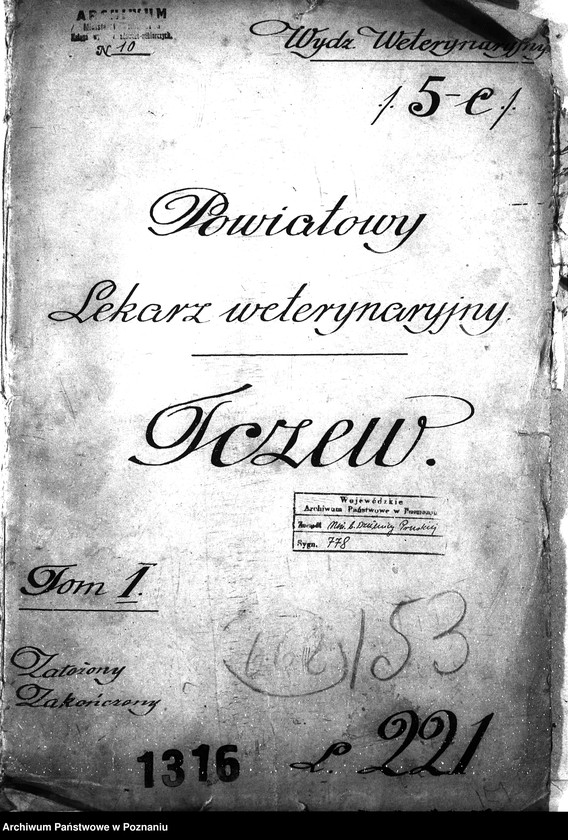 ARCHIWUM
N 10
Wydz. Weterynaryjny
/. 5-c ./.
Powiatowy
Lekarz weterynaryjny.
Tczew.
Wojewódzkie
Archiwum Państwowe w Poznaniu
Zespół Min. b. Dzielnicy Pruskiej
Sygn. 778
Tom I.
153
Założony
Zakończony
1316 L. 221
Archiwum Państwowe w Poznaniu